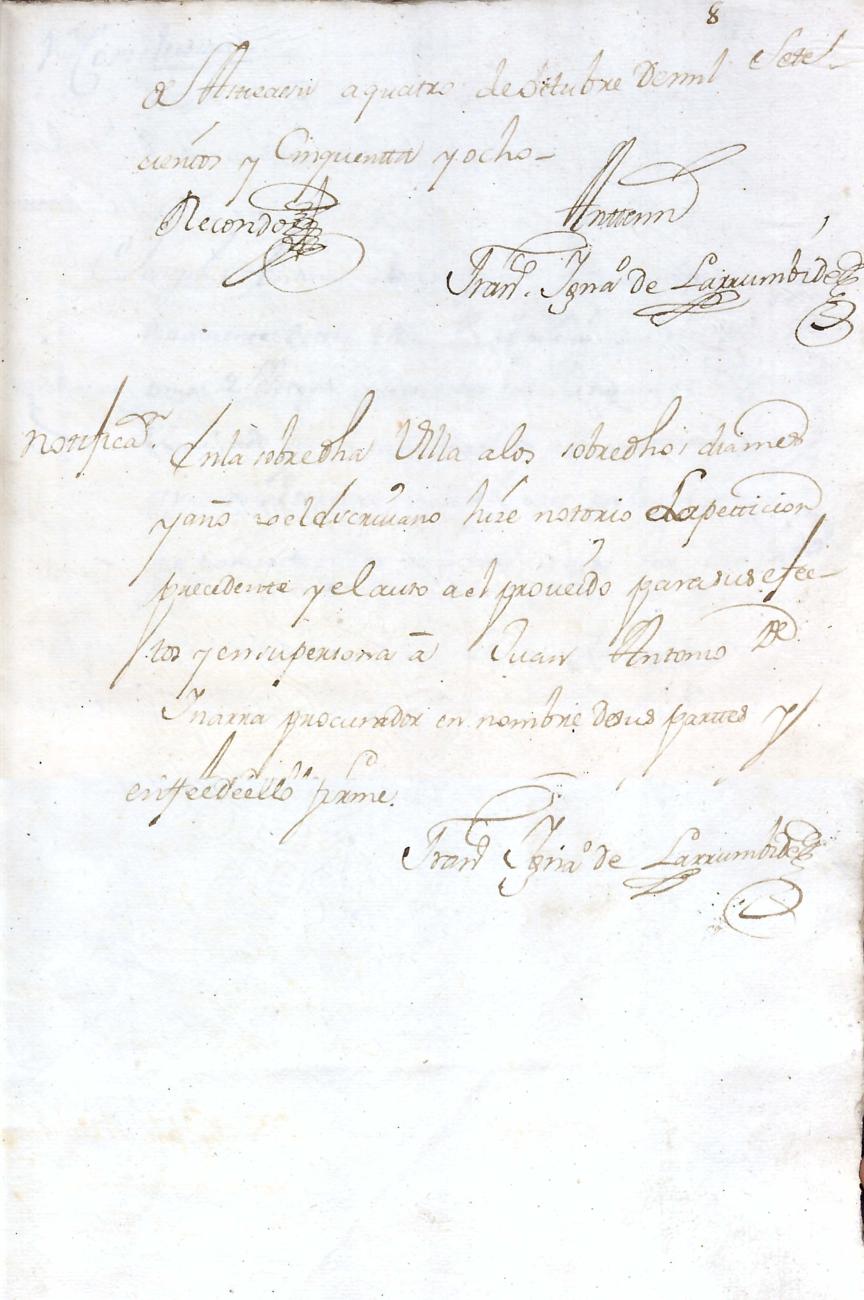 8
de Asteasu a quatro de Octubre de mil Sete
cientos y Cinquentta y ocho-
Recondo
Antemi
Fran.co Ign.o de Larrumbide
Notifica.on
En la sobredha Villa a los sobredhos dia mes
y año yo el escrivano hize notorio La petticion
precedente y el auto a el proveido para sus efec-
tos y en su persona a Juan Antonio de
Ynarra procurador en nombre de sus parttes y
en fee de ello firme.
Fran.co Ign.o de Larrumbide